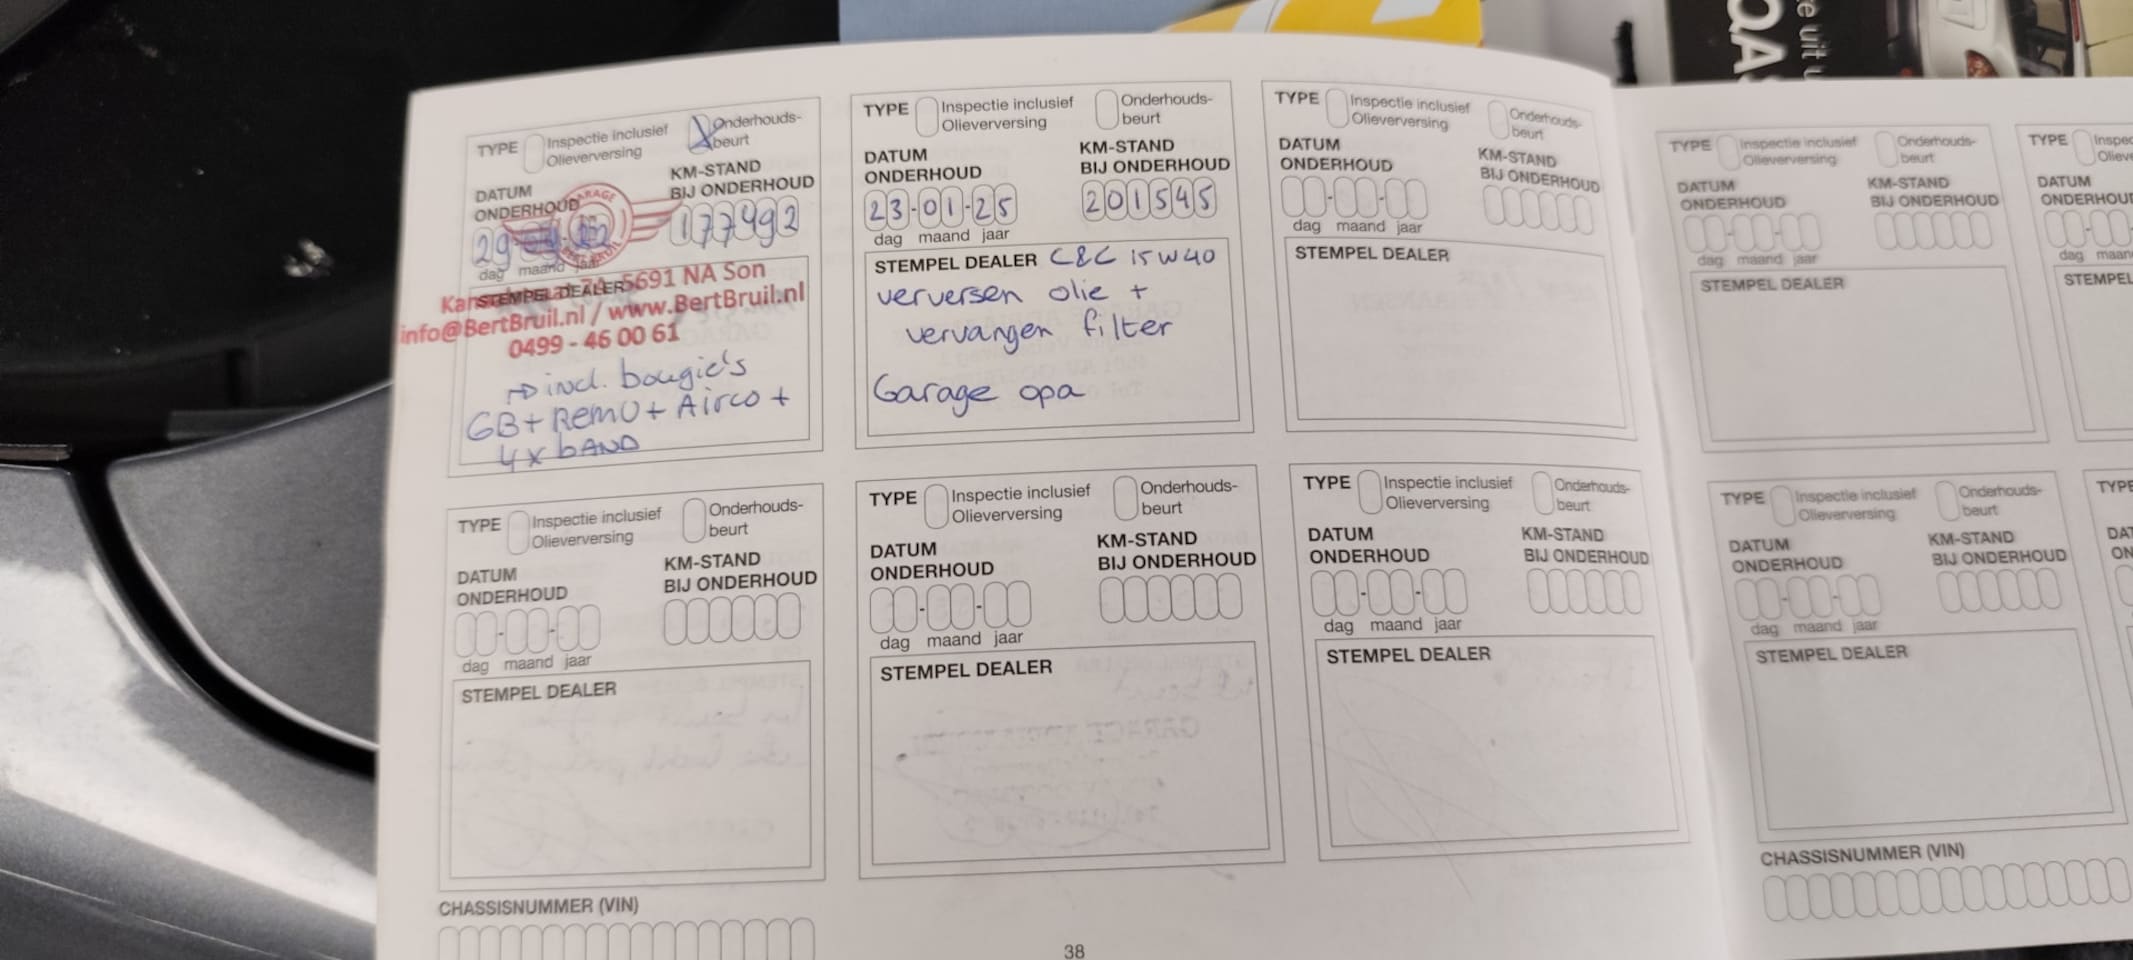 TYPE Inspectie inclusief Olieverversing
X Onderhouds-beurt
DATUM ONDERHOUD
KM-STAND BIJ ONDERHOUD
29
177492
dag maand jaar
GARAGE
BERT BRUIL
STEMPEL DEALER
5691 NA Son
info@BertBruil.nl / www.BertBruil.nl
0499 - 46 00 61
→ incl. bougie's
GB + RemU + Airco +
4x bAND
TYPE Inspectie inclusief Olieverversing
Onderhouds-beurt
DATUM ONDERHOUD
KM-STAND BIJ ONDERHOUD
23-01-25
201545
dag maand jaar
STEMPEL DEALER C&C 15W40
verversen olie +
vervangen filter
Garage opa
TYPE Inspectie inclusief Olieverversing
Onderhouds-beurt
DATUM ONDERHOUD
KM-STAND BIJ ONDERHOUD
dag maand jaar
STEMPEL DEALER
TYPE Inspectie inclusief Olieverversing
Onderhouds-beurt
DATUM ONDERHOUD
KM-STAND BIJ ONDERHOUD
dag maand jaar
STEMPEL DEALER
TYPE
DATUM
ONDERHOU
dag maan
STEMPEL
TYPE Inspectie inclusief Olieverversing
Onderhouds-beurt
DATUM ONDERHOUD
KM-STAND BIJ ONDERHOUD
dag maand jaar
STEMPEL DEALER
CHASSISNUMMER (VIN)
TYPE Inspectie inclusief Olieverversing
Onderhouds-beurt
DATUM ONDERHOUD
KM-STAND BIJ ONDERHOUD
dag maand jaar
STEMPEL DEALER
38
TYPE Inspectie inclusief Olieverversing
Onderhouds-beurt
DATUM ONDERHOUD
KM-STAND BIJ ONDERHOUD
dag maand jaar
STEMPEL DEALER
TYPE Inspectie inclusief Olieverversing
Onderhouds-beurt
DATUM ONDERHOUD
KM-STAND BIJ ONDERHOUD
dag maand jaar
STEMPEL DEALER
CHASSISNUMMER (VIN)
TYPE